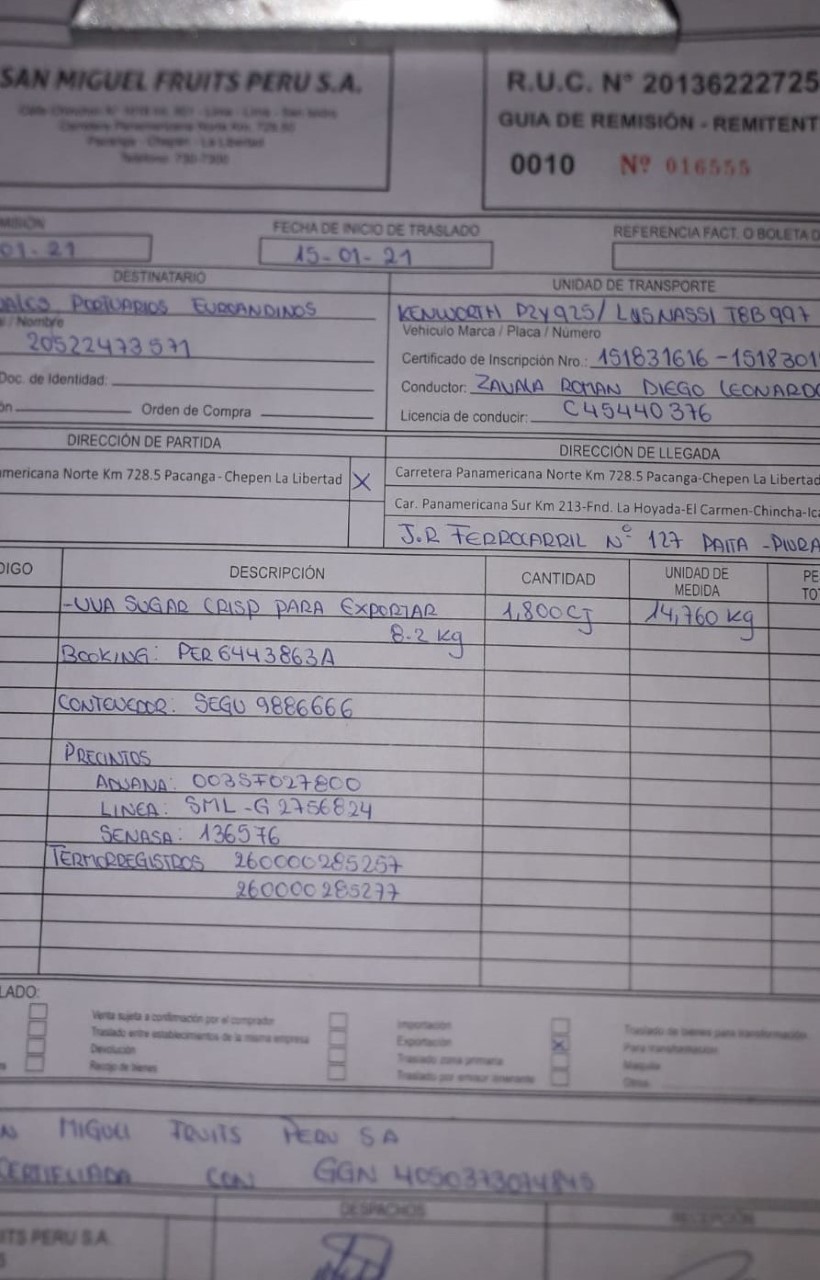 SAN MIGUEL FRUITS PERU S.A.
Carretera Panamericana Norte Km. 728.50
Pacanga - Chepen - La Libertad
Teléfono: 730-7300
R.U.C. Nº 20136222725
GUIA DE REMISIÓN - REMITENT
0010 Nº 016555
MISIÓN
01-21
FECHA DE INICIO DE TRASLADO
15-01-21
REFERENCIA FACT. O BOLETA D
DESTINATARIO
UNIDAD DE TRANSPORTE
PORTUARIOS EUROANDINOS
l / Nombre
20522473571
KENWORTH P2Y925/ LUSNASSI T8B997
Vehículo Marca / Placa / Número
Certificado de Inscripción Nro.: 151831616-1518301
Doc. de Identidad:
Conductor: ZAVALA ROMAN DIEGO LEONARDO
ón Orden de Compra
Licencia de conducir: C45440376
DIRECCIÓN DE PARTIDA
DIRECCIÓN DE LLEGADA
americana Norte Km 728.5 Pacanga-Chepen La Libertad X
Carretera Panamericana Norte Km 728.5 Pacanga-Chepen La Libertad
Car. Panamericana Sur Km 213-Fnd. La Hoyada-El Carmen-Chincha-Ica
J.R FERROCARRIL Nº 127 PAITA -PIURA
DIGO DESCRIPCIÓN CANTIDAD UNIDAD DE MEDIDA PE TOT
-UVA SUGAR CRISP PARA EXPORTAR 1,800CJ 14,760 kg
8.2 kg
BOOKING: PER6443863A
CONTENEDOR: SEGU 9886666
PRECINTOS
ADUANA: 0035F027800
LINEA: SML-G2756824
SENASA: 136576
TERMORREGISTROS 260000285257
260000285277
LADO:
Venta sujeta a confirmación por el comprador
Traslado entre establecimientos de la misma empresa
Devolución
Recojo de bienes
Importación
Exportación X
Traslado zona primaria
Traslado por emisor itinerante
Traslado de bienes para transformación
Para transformación
Maquila
Otros
N MIGUEL FRUITS PERU SA
CERTIFICADA CON GGN 4050373074845
DESPACHOS
RECEPCIÓN
ITS PERU S.A.
5